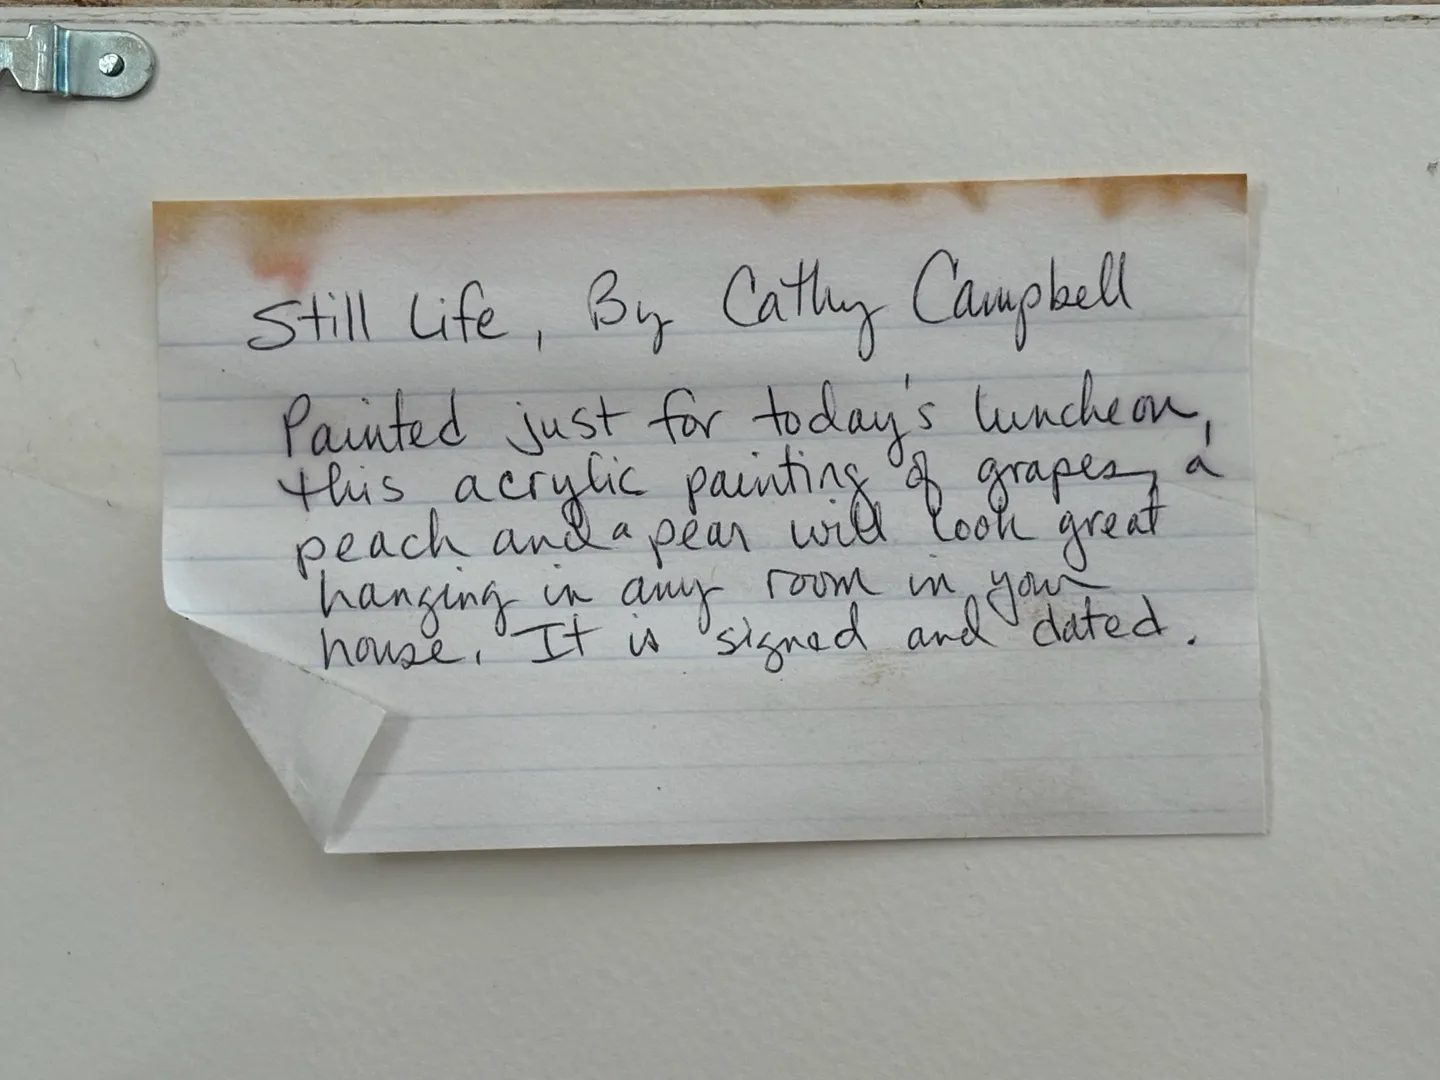 Still Life, By Cathy Campbell
Painted just for today's luncheon,
this acrylic painting of grapes, a
peach and a pear will look great
hanging in any room in your
house. It is signed and dated.